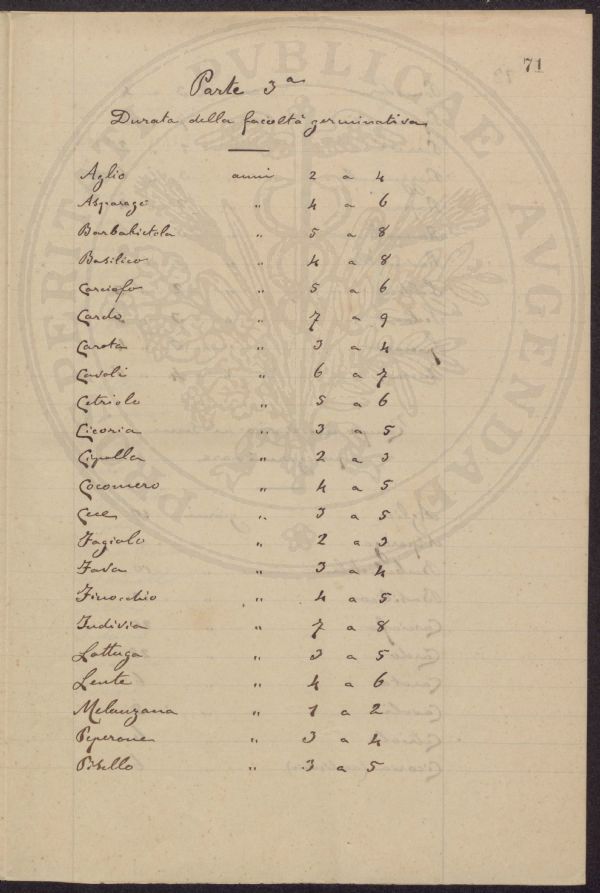 71
Parte 3a
Durata della facoltà germinativa
Aglio anni 2 a 4
Asparago " 4 a 6
Barbabietola " 5 a 8
Basilico " 4 a 8
Carciofo " 5 a 6
Cardo " 7 a 9
Carota " 3 a 4
Cavoli " 6 a 7
Cetriolo " 5 a 6
Cicoria " 3 a 5
Cipolla " 2 a 3
Cocomero " 4 a 5
Cece " 3 a 5
Fagiolo " 2 a 3
Fava " 3 a 4
Finocchio " 4 a 5
Indivia " 7 a 8
Lattuga " 3 a 5
Lente " 4 a 6
Melanzana " 1 a 2
Peperone " 3 a 4
Pisello " 3 a 5